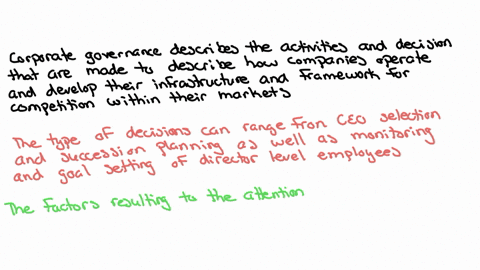 Corporate governance describes the activities and decision
that are made to describe how companies operate
and develop their infrastructure and framework for
competition within their markets
The type of decisions can range from CEO selection
and succession planning as well as monitoring
and goal setting of director level employees
The factors resulting to the attention